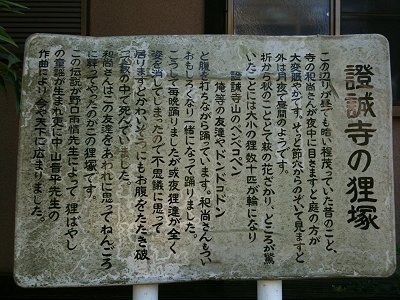 證誠寺の狸塚
この辺りが昼でも暗い程茂っていた昔のこと、
寺の和尚さんが夜中に目さますと庭の方が
大変賑やかです。そっと節穴からのぞいて見ますと
外は月夜で昼間のようです。
折から秋のこととて萩の花ざかり、ところが驚
いたことには大小の狸数十匹が輪になり
證誠寺山のペンペコペン
俺等の友達やドンドコドン
と腹を打ちながら踊っています。和尚さんもつい
おもしろくなり一緒になって踊りました。
こうして毎晩踊りましたが或夜狸達が全く
姿を消してしまったので不思議に思って
居りますとかわいそうにも大狸が腹をたたき破
って萩の中で死んでいました。
和尚さんはこの友達をあわれに思ってねんごろ
に葬ってやったのがこの狸塚です。
この伝説が野口雨情先生によって「狸ばやし」
の童謡が生まれ更に中山晋平先生の
作曲により今や天下に広まりました。